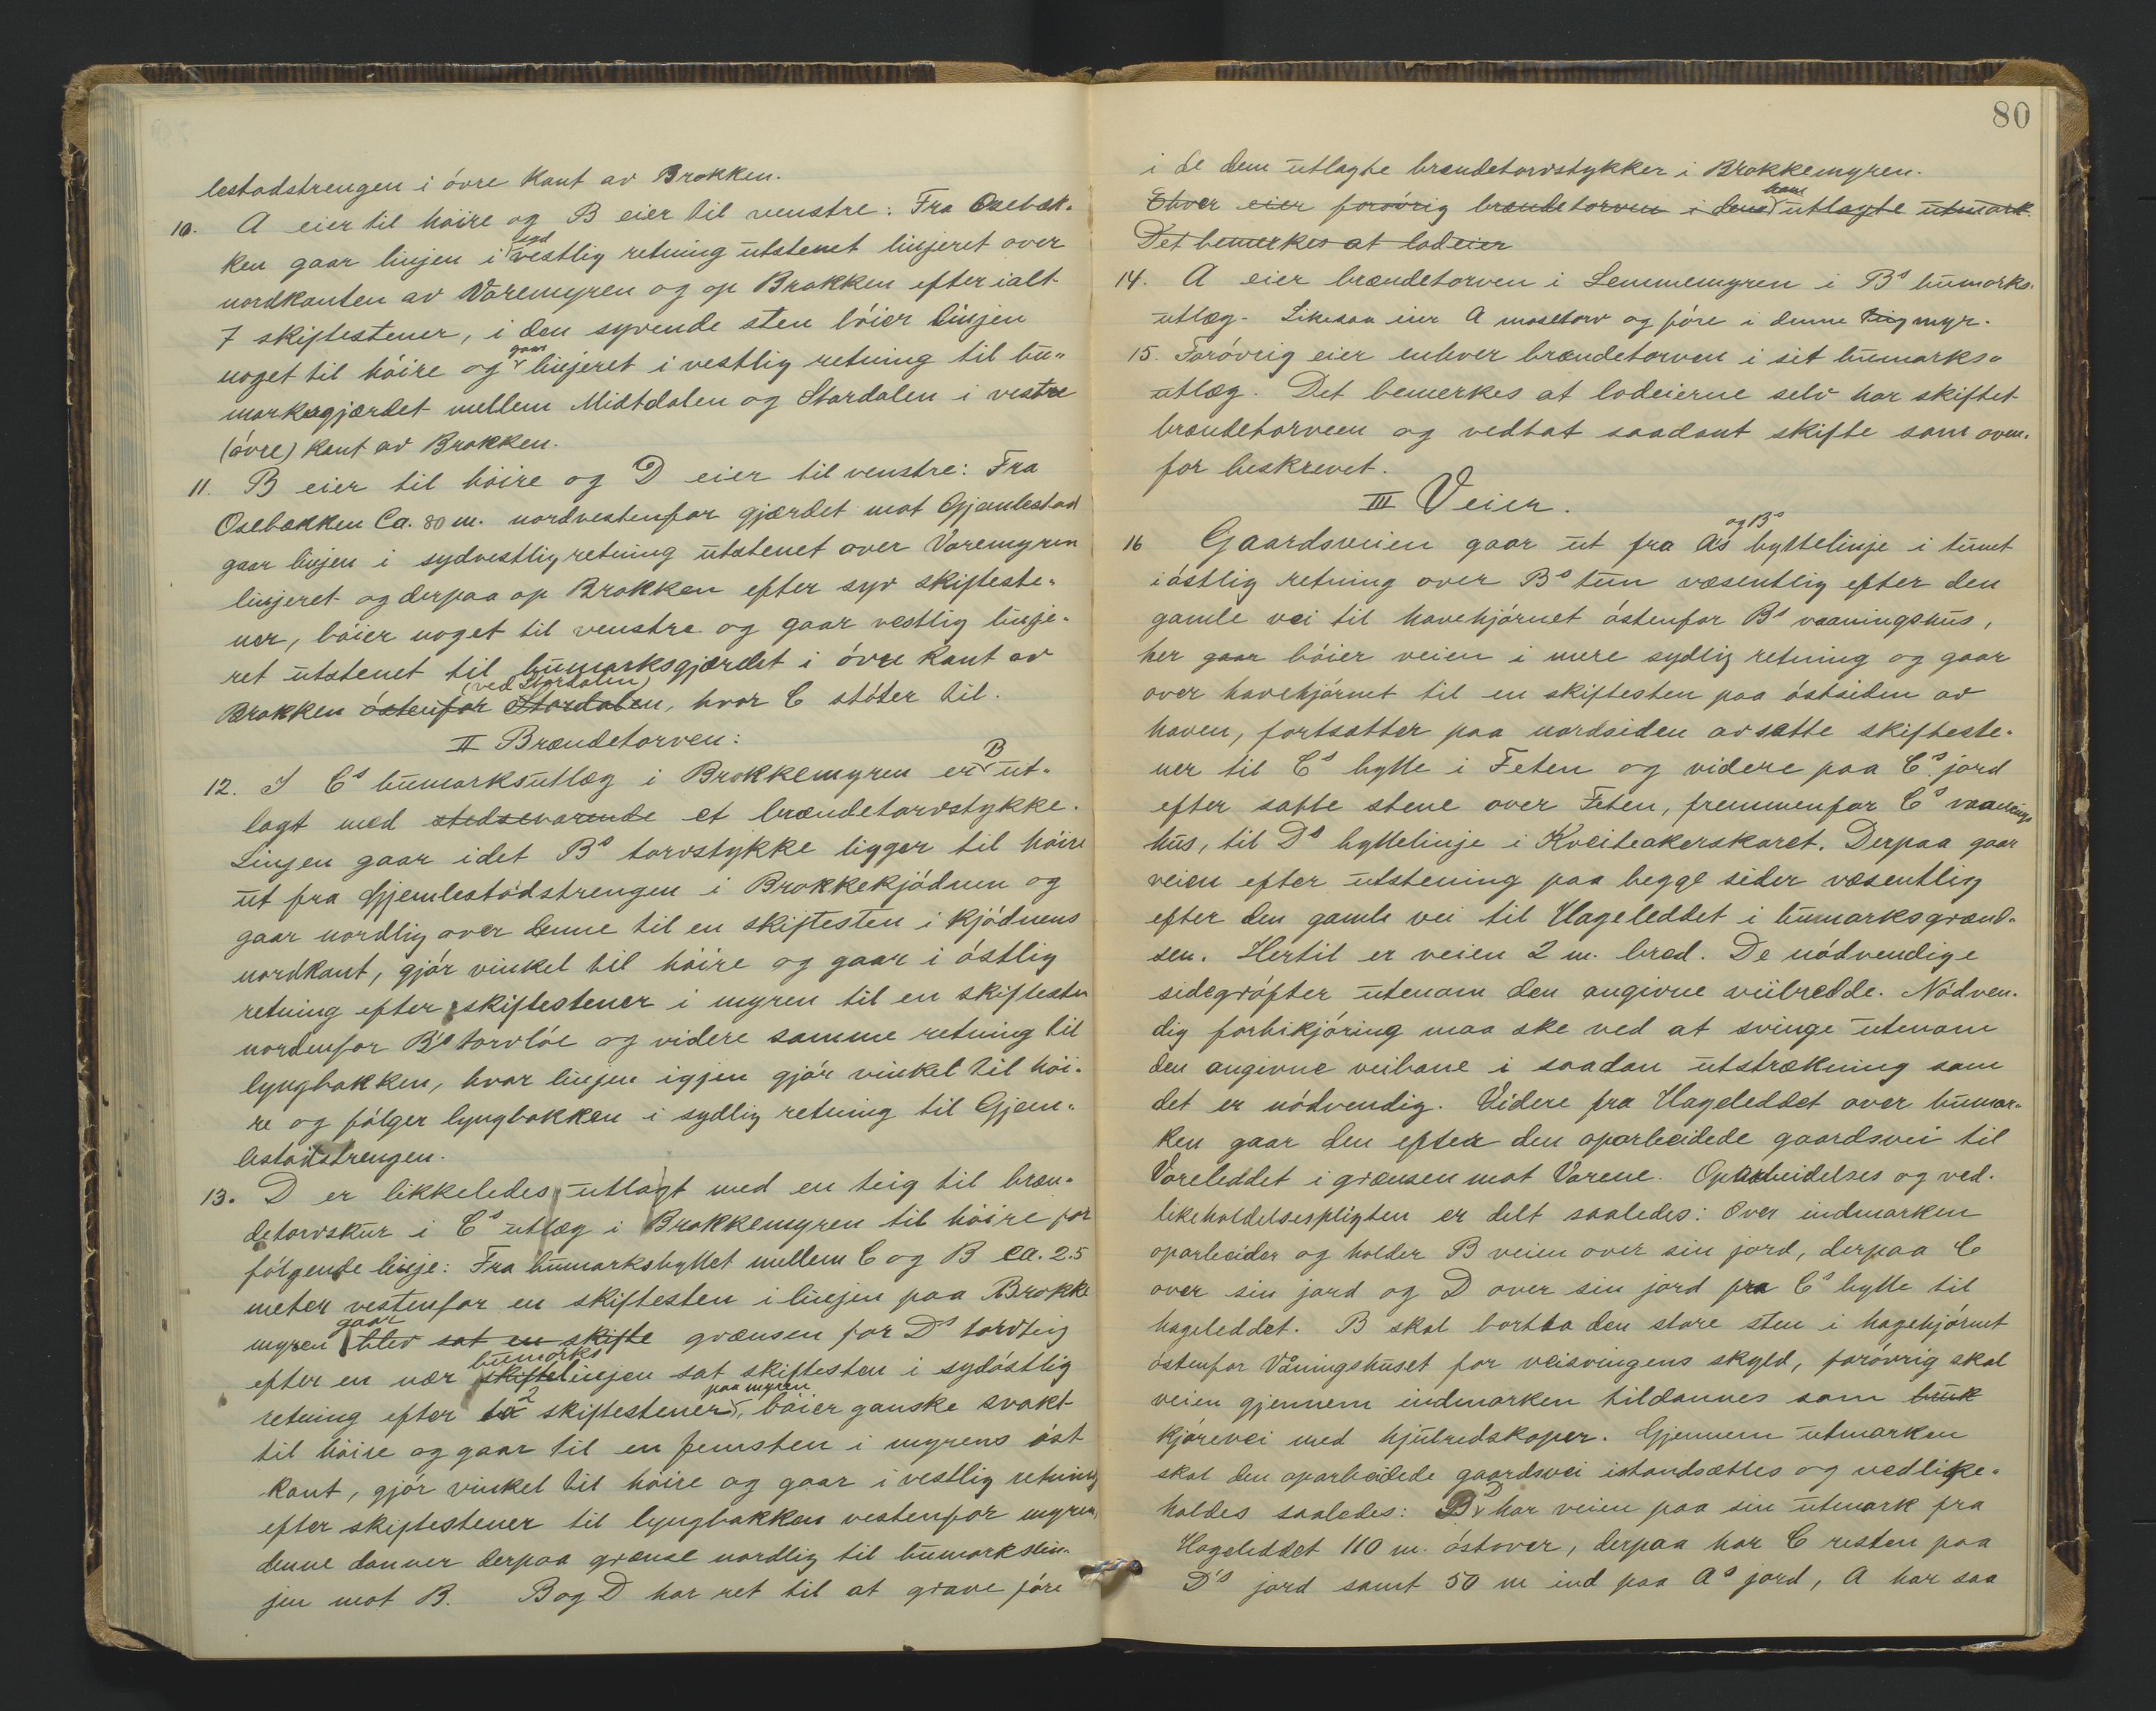 lestadstrengen i óvre Kant av Brokken.
10. A eier til hóire og B eier til venstre: Fra Osebæk-
ken gaar linjen i syd vestlig retning utstenet linjeret over
nordkanten av Varemyren og op Brokken efter ialt
7 skiftestener, i den syvende sten bóier linjen
noget til hóire og gaar linjeret i vestlig retning til bu-
marksgjærdet mellem Midtdalen og Stordalen i vestre
(óvre) Kant av Brokken.
11. B eier til hóire og D eier til venstre: Fra
Osebækken Ca. 80 m. nordvestenfor gjærdet mot Gjemlestad
gaar linjen i sydvestlig retning utstenet over Varemyren
linjeret og derpaa op Brokken efter syv skifteste-
ner, bóier noget til venstre og gaar vestlig linje-
ret utstenet til bumarksgjærdet i óvre Kant av
(ved Stordalen)
Brokken óstenfor Stordalen, hvor C stóter til.
II Brændetorven:
12. I Cs bumarksutlæg i Brokkemyren er B ut-
lagt med stedsevarende et brændetorvstykke.
Linjen gaar idet Bs torvstykke ligger til hóire
ut fra Gjemlestadstrengen i Brokkekjódnen og
gaar nordlig over denne til en skiftesten i kjódnens
nordkant, gjór vinkel til hóire og gaar i óstlig
retning efter skiftestener i myren til en skiftesten
nordenfor B's torvlóe og videre samme retning til
lyngbakken, hvor linjen igjen gjór vinkel til hói-
re og fólger lyngbakken i sydlig retning til Gjem-
lestadstrengen.
13. D er likkeledes utlagt med en teig til bræn-
detorvskur i Cs utlæg i Brokkemyren til hóire for
fólgende linje: Fra bumarksbyttet mellem C og B ca. 2.5
meter vestenfor en skiftesten i linjen paa Brokke
gaar
myren blev sat en skifte grænsen for Ds torvteig
bumarks
efter en nær skiftelinjen sat skiftesten i sydóstlig
retning efter to 2 skiftestener paa myren, bóier ganske svakt
til hóire og gaar til en femsten i myrens óst
kant, gjór vinkel til hóire og gaar i vestlig retning
efter skiftestener til lyngbakken vestenfor myren,
denne danner derpaa grænse nordlig til bumarkslin-
jen mot B. B og D har ret til at grave fóre
80
i de dem utlagte brændetorvstykker i Brokkemyren.
Ehver eier foróvrig brændetorven i dens ham utlagte utmark.
Det bemerkes at lodeier
14. A eier brændetorven i Lemmemyren i Bs bumarks-
utlæg. Likesaa eier A mosetorv og fóre i denne teig myr.
15. Foróvrig eier enhver brændetorven i sit bumarks-
utlæg. Det bemerkes at lodeierne selv har skiftet
brændetorven og vedtat saadant skifte som oven-
for beskrevet.
III Veier.
16 Gaardsveien gaar ut fra A's og Bs byttelinje i tunet
i óstlig retning over Bs tun væsentlig efter den
gamle vei til havehjórnet óstenfor Bs vaaningshus,
her gaar bóier veien i mere sydlig retning og gaar
over havehjórnet til en skiftesten paa óstsiden av
haven, fortsætter paa nordsiden av satte skifteste-
ner til Cs bytte i Feten og videre paa Cs jord
efter satte stene over Feten, fremmenfor Cs vaanings
hus, til Ds byttelinje i Kveiteakerskaret. Derpaa gaar
veien efter utstening paa begge sider væsentlig
efter den gamle vei til Hageleddet i bumarksgrænd-
sen. Hertil er veien 2 m. bred. De nódvendige
sidegrófter utenom den angivne veibredde. Nódven-
dig forbikjóring maa ske ved at svinge utenom
den angivne veibane i saadan utstrækning som
det er nódvendig. Videre fra Hageleddet over bumar-
ken gaar den efter den oparbeidede gaardsvei til
Voreleddet i grænsen mot Varene. Oparbeidelses og ved-
likeholdelsespligten er delt saaledes: Over indmarken
oparbeider og holder B veien over sin jord, derpaa C
over sin jord og D over sin jord fra Cs bytte til
hageleddet. B skal bortta den store sten i hagehjórnet
óstenfor Våningshuset for veisvingens skyld, foróvrig skal
veien gjennem indmarken tildannes som bruk
kjórevei med hjulredskaper. Gjennem utmarken
skal den oparbeidede gaardsvei istandsættes og vedlike-
holdes saaledes: B D har veien paa sin utmark fra
Hageleddet 110 m. óstover, derpaa har C resten paa
D's jord samt 50 m ind paa As jord, A har saa